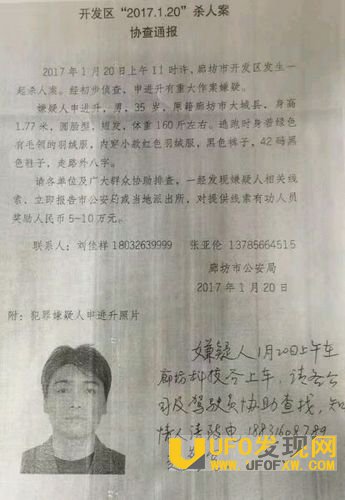 开发区“2017.1.20”杀人案
协查通报
2017年1月20日上午11时许，廊坊市开发区发生一
起杀人案。经初步侦查，申进升有重大作案嫌疑。
嫌疑人申进升，男，35岁，原籍廊坊市大城县，身高
1.77米，圆脸型，短发，体重160斤左右。逃跑时身着绿色
有毛领的羽绒服，内穿小款红色羽绒服，黑色裤子，42码黑
色鞋子，走路外八字。
请各单位及广大群众协助排查，一经发现嫌疑人相关线
索，立即报告市公安局或当地派出所，对提供线索有功人员
奖励人民币5-10万元。
联系人：刘佳祥18032639999 张亚伦13785664515
廊坊市公安局
2017年1月20日
附：犯罪嫌疑人申进升照片
嫌疑人1月20日上午在
廊坊 上车，请各公
司及驾驶员协助查找，知
情人请致电 18831608789
UFO发现网
WWW.UFOFXW.COM